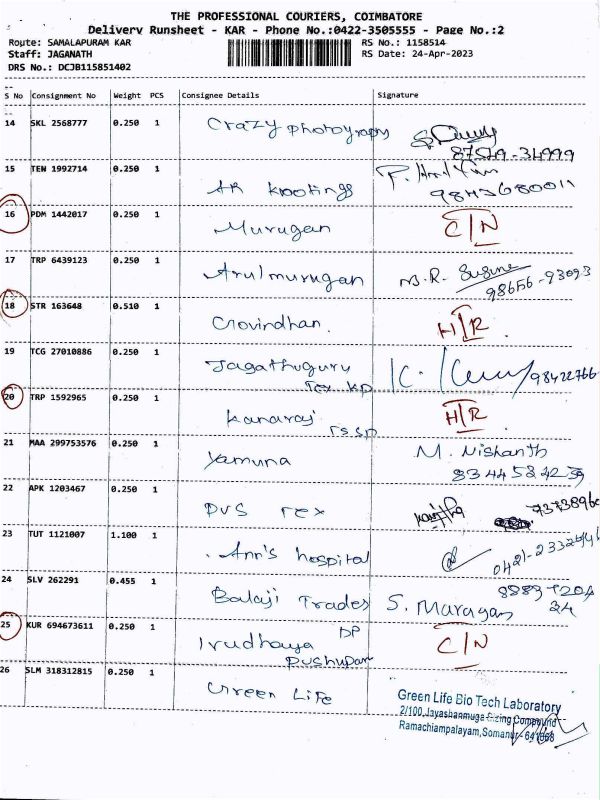 THE PROFESSIONAL COURIERS, COIMBATORE
Delivery Runsheet - KAR - Phone No.:0422-3505555 - Page No.:2
Route: SAMALAPURAM KAR
RS No.: 1158514
Staff: JAGANATH
RS Date: 24-Apr-2023
DRS No.: DCJB115851402
S No Consignment No Weight PCS Consignee Details Signature
14 SKL 2568777 0.250 1 Crazy photography
15 TEN 1992714 0.250 1 AR knotings
9843680011
16 PDM 1442017 0.250 1 Murugan C/N
17 TRP 6439123 0.250 1 Arulmurugan
98656-93093
18 STR 163648 0.510 1 Govindhan. H/R
19 TCG 27010886 0.250 1 Jagathguru
Tex KP 98422766
20 TRP 1592965 0.250 1 Kanaraj H/R
TSSP
21 MAA 299753576 0.250 1 Yamuna M. Nishanth
22 APK 1203467 0.250 1 PVS Tex
23 TUT 1121007 1.100 1 Ann's hospital
24 SLV 262291 0.455 1 Balaji Trades S. Murugan
25 KUR 694673611 0.250 1 Irudhaya DP C/N
Pushupam
26 SLM 318312815 0.250 1 Green Life
Green Life Bio Tech Laboratory
2/100, Jayashanmuga Sizing Compound
Ramachiampalayam, Somanur - 641668